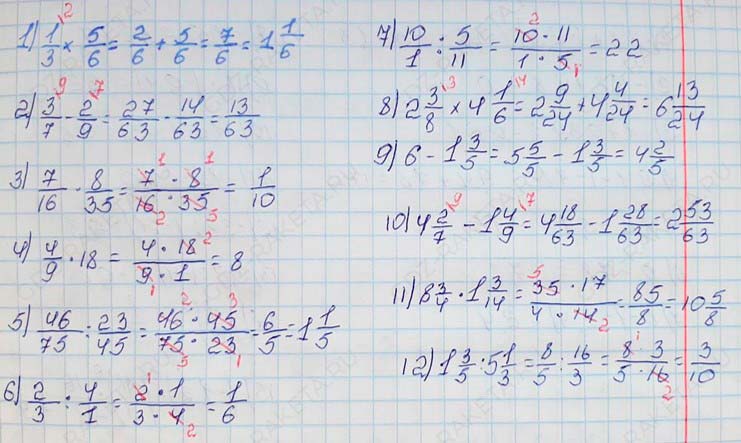 1) 1/3 × 5/6 = 2/6 + 5/6 = 7/6 = 1 1/6
2) 3/7 - 2/9 = 27/63 - 14/63 = 13/63
3) 7/16 · 8/35 = 7 · 8/16 · 35 = 1/10
4) 4/9 · 18 = 4 · 18/9 · 1 = 8
5) 46/75 : 23/45 = 46 · 45/75 · 23 = 6/5 = 1 1/5
6) 2/3 : 4/1 = 2 · 1/3 · 4 = 1/6
7) 10/1 : 5/11 = 10 · 11/1 · 5 = 22
8) 2 3/8 × 4 1/6 = 2 9/24 + 4 4/24 = 6 13/24
9) 6 - 1 3/5 = 5 5/5 - 1 3/5 = 4 2/5
10) 4 2/7 - 1 4/9 = 4 18/63 - 1 28/63 = 2 53/63
11) 8 3/4 · 1 3/14 = 35 · 17/4 · 14 = 85/8 = 10 5/8
12) 1 3/5 : 5 1/3 = 8/5 : 16/3 = 8 · 3/5 · 16 = 3/10